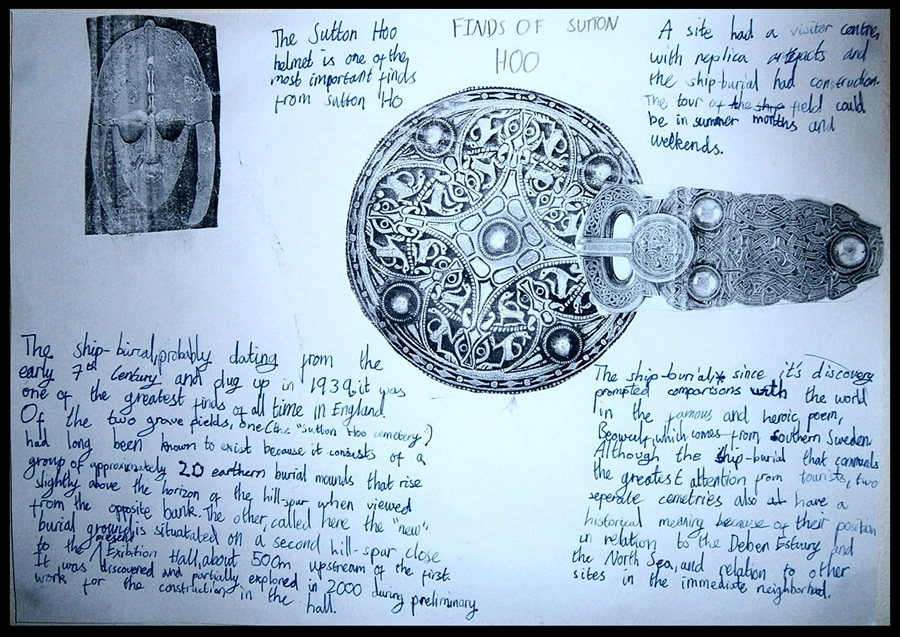 FINDS OF SUTTON
HOO
The Sutton Hoo
helmet is one of the
most important finds
from Sutton Ho
A site had a visitor centre,
with replica artefacts and
the ship-burial had construction.
The tour of the ship field could
be in summer months and
weekends.
The ship-burial, probably dating from the
early 7th Century and dug up in 1939, it was
one of the greatest finds of all time in England.
Of the two grave fields, one (the "Sutton Hoo cemetery")
had long been known to exist because it consists of a
group of approximately 20 earthern burial mounds that rise
slightly above the horizon of the hill-spur when viewed
from the opposite bank. The other, called here the "new"
burial ground is situatated on a second hill-spur close
to the present Exibition Hall, about 500m upstream of the first.
It was discovered and partially explored in 2000 during preliminary
work for the construction in the hall.
The ship-burial, since it's discovery
prompted comparisons with the world
in the famous and heroic poem,
Beowulf, which comes from Southern Sweden
Although the ship-burial that commands
the greatest attention from tourists, two
seperate cemetries also have a
historical meaning because of their position
in relation to the Deben Estuary and
the North Sea, and relation to other
sites in the immediate neighborhod.